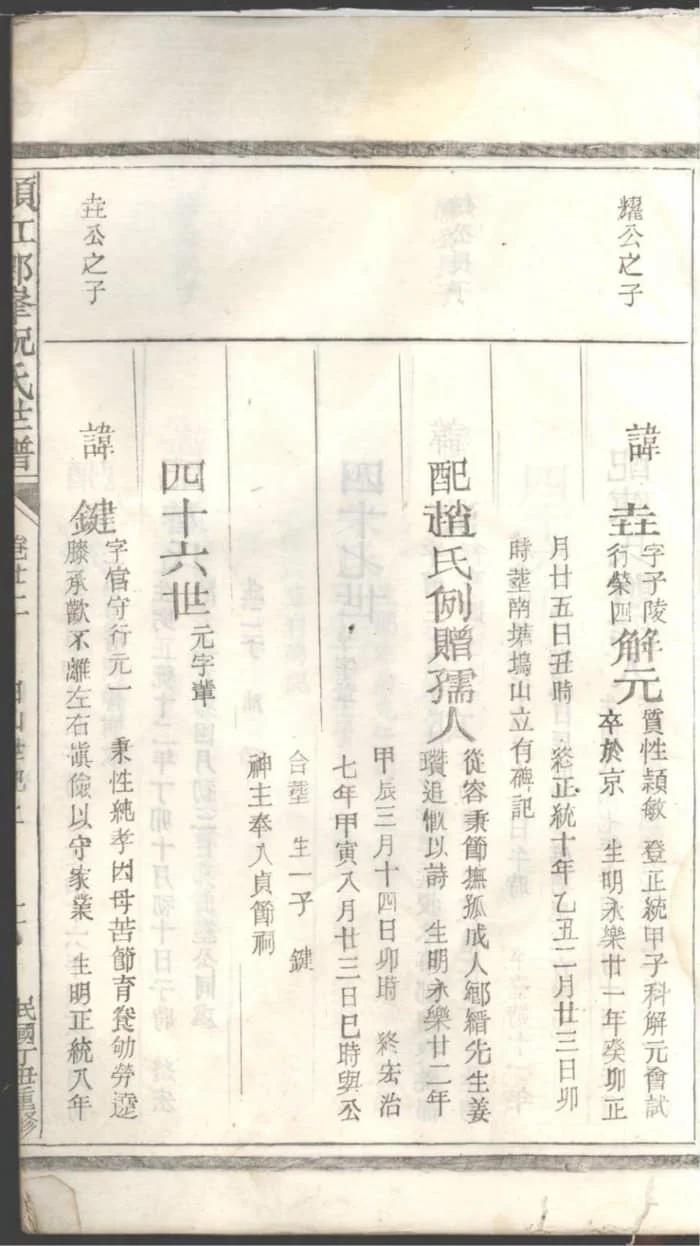 耀公之子
諱
垚
字子陵
行榮四
解元
質性穎敏 登正統甲子科解元會試
卒於京 生明永樂廿一年癸卯正
月廿五日丑時 終正統十年乙丑二月廿三日卯
時塟南塘塢山立有碑記
配趙氏例贈孺人
從容秉節撫孤成人鄉縉先生姜
瓚追慨以詩 生明永樂廿二年
甲辰三月十四日卯時 終宏治
七年甲寅八月廿三日巳時與公
合塟 生一子 鍵
神主奉入貞節祠
四十六世 元字輩
垚公之子
諱
鍵
字官守行元一 秉性純孝因母苦節育養劬勞遶
膝承歡不離左右慎儉以守家業 生明正統八年
郎峯祝氏世譜
卷廿二
民國丁丑重修